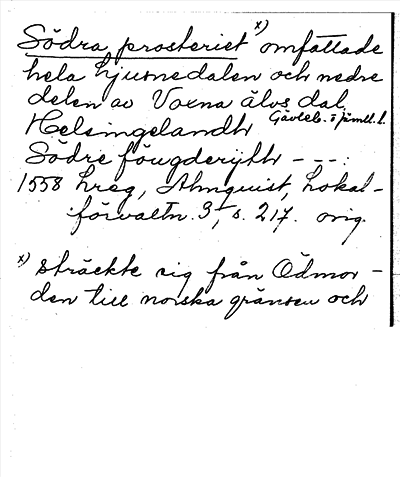 Södra prosteriet x) omfattade
hela Ljusnedalen och nedre
delen av Voxna älvs dal,
Helsingelandh Gävleb. s jämtl. l.
Södre föugderijth - - - :
1558 Lreg, Almquist, Lokal-
förvaltn. 3, s. 217. orig.
x) sträckte sig från Ödmor-
den till norska gränsen och